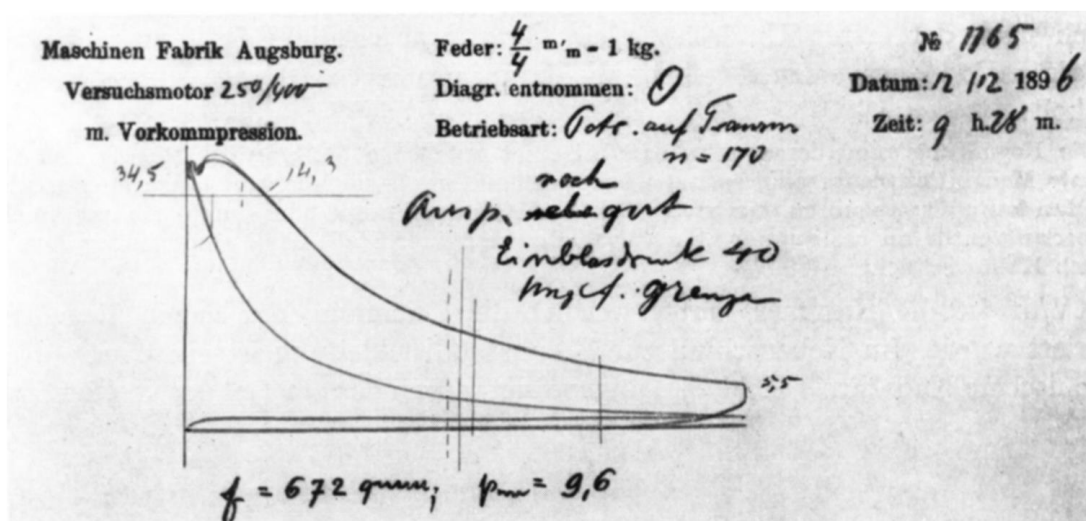 Maschinen Fabrik Augsburg.
Versuchsmotor 250/400
m. Vorkommpression.
Feder: 4/4 m/m = 1 kg.
Diagr. entnommen: O
Betriebsart: Petr. auf Transm
n = 170
№ 1165
Datum: 12/12 1896
Zeit: 9 h. 28 m.
34,5
14,3
noch
Ausp. gut
Einblasdruck 40
grenze
5,5
f = 672 qmm; pm = 9,6